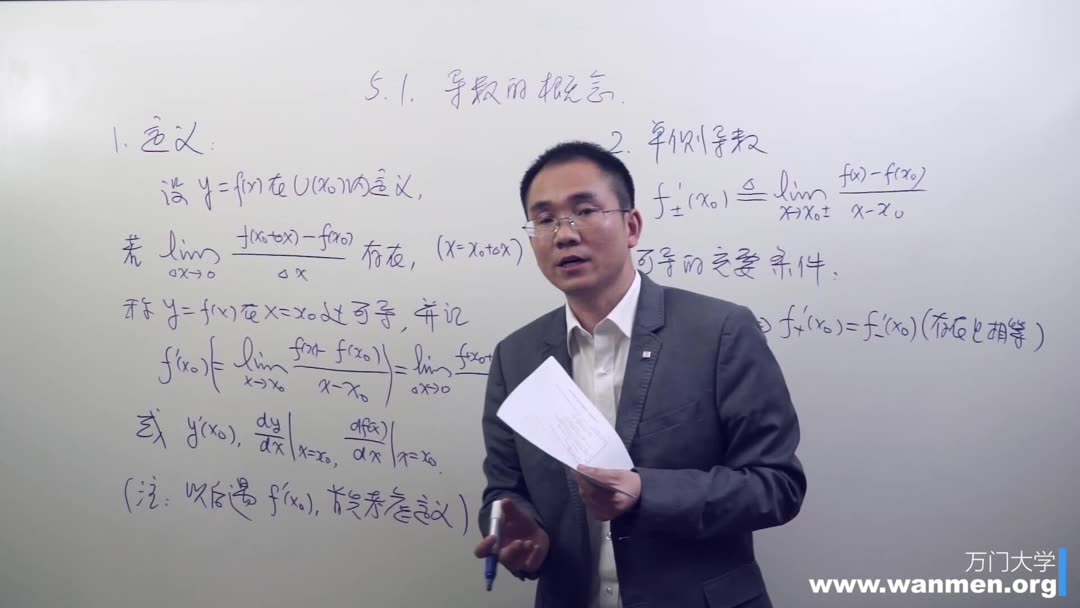 5.1. 导数的概念.
1. 定义:
设 y=f(x) 在 U(x₀) 内定义,
若 lim_{Δx→0} \frac{f(x₀+Δx)-f(x₀)}{Δx} 存在, (x=x₀+Δx)
称 y=f(x) 在 x=x₀ 处可导, 并记
f'(x₀)(=lim_{x→x₀} \frac{f(x)-f(x₀)}{x-x₀})=lim_{Δx→0} \frac{f(x₀+
或 y'(x₀), \frac{dy}{dx}|_{x=x₀}, \frac{df(x)}{dx}|_{x=x₀}.
(注: 以后遇 f'(x₀), 首先考虑定义)
2. 单侧导数
f'_±(x₀) ≜ lim_{x→x₀±} \frac{f(x)-f(x₀)}{x-x₀}
可导的充要条件:
f'_+(x₀)=f'_-(x₀) (存在且相等)
万门大学
www.wanmen.org